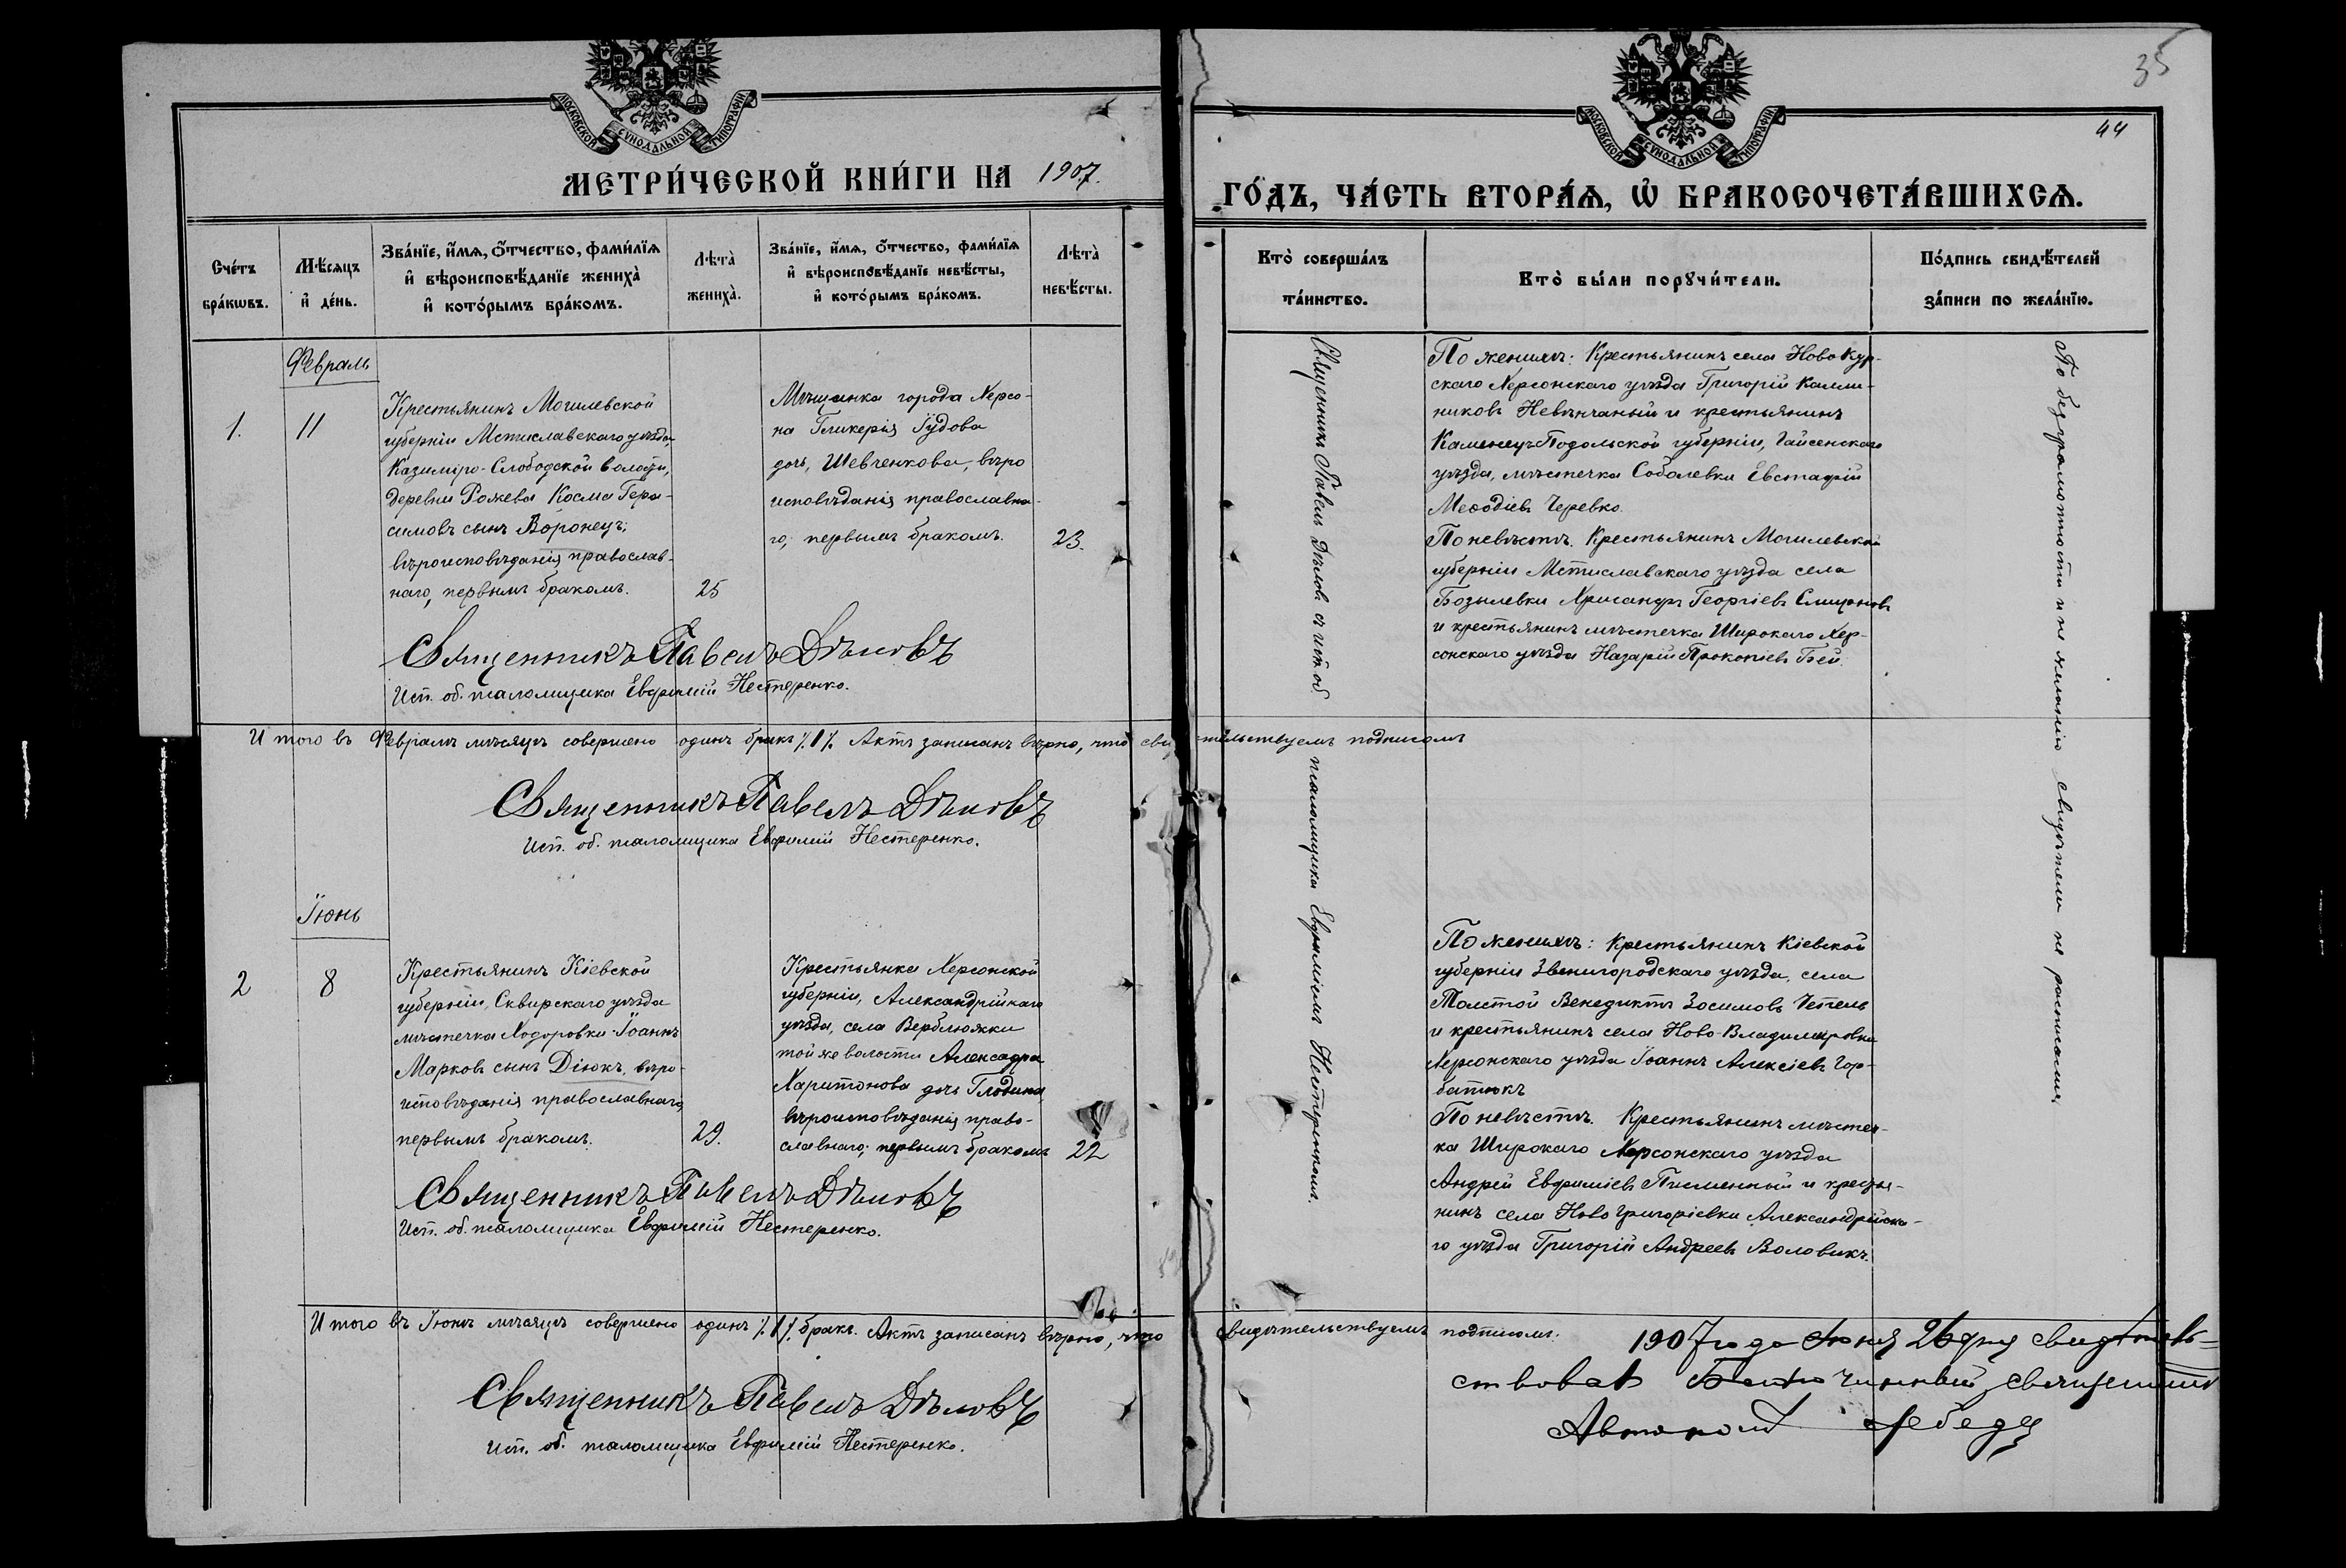 35
44
МОСКОВСКОЙ СѴНОДАЛЬНОЙ ТИПОГРАФІИ
МОСКОВСКОЙ СѴНОДАЛЬНОЙ ТИПОГРАФІИ
МЕТРИ́ЧЕСКОЙ КНИ́ГИ НА 1907.
ГО́ДЪ, ЧА́СТЬ ВТОРА́Ѧ, Ѡ҆ БРАКОСОЧЕТА́ВШИХСѦ.
Сче́тъ
бра́кѡвъ.
Мѣ́сяцъ
и҆ де́нь.
Зва́нїе, и҆́мѧ, ѻ҆́тчество, фами́лїѧ
и҆ вѣроисповѣ́данїе жениха̀
и҆ кото́рымъ бра́комъ.
Лѣта̀
жениха̀.
Зва́нїе, и҆́мѧ, ѻ҆́тчество, фами́лїѧ
и҆ вѣроисповѣ́данїе невѣ́сты,
и҆ кото́рымъ бра́комъ.
Лѣта̀
невѣ́сты.
Кто̀ соверша́лъ
та́инство.
Кто̀ бы́ли порꙋчи́тели.
По́дпись свидѣ́телей
за́писи по жела́нїю.
Февраль
1.
11
Крестьянинъ Могилевской
губерніи Мстиславскаго уѣзда,
Казиміро-Слободской волости,
деревни Рожева Косма Гера-
симовъ сынъ Воронецъ;
вѣроисповѣданія православ-
наго, первымъ бракомъ.
25
Мѣщанка города Херсо-
на Гликерія Іудова
дочь, Шевченкова, вѣро
исповѣданія православна-
го, первымъ бракомъ.
23.
Священникъ Павелъ Дѣловъ
Исп. об. псаломщика Евфимій Нестеренко.
Священникъ Павелъ Дѣловъ съ исп. об. псаломщика Евфиміемъ Нестеренкомъ.
По женихѣ: Крестьянинъ села Ново Кур-
скаго Херсонскаго уѣзда Григорій Калли-
никовъ Невѣнчаный и крестьянинъ
Каменецъ Подольской губерніи, Гайсенскаго
уѣзда, мѣстечка Соболевки Евстафій
Меѳодіевъ Черевко.
По невѣстѣ. Крестьянинъ Могилевской
губерніи Мстиславскаго уѣзда села
Бозылевки Хрисанфъ Георгіевъ Смирновъ
и крестьянинъ мѣстечка Широкаго Хер-
сонскаго уѣзда Назарій Прокопіевъ Бей.
По безграмотности и не желанію свидѣтели не росписались
Итого въ Февралѣ мѣсяцѣ совершено одинъ бракъ /.1/. Актъ записанъ вѣрно, что свидѣтельствуемъ подписомъ
Священникъ Павелъ Дѣловъ
Исп. об. псаломщика Евфимій Нестеренко.
Іюнь
2
8
Крестьянинъ Кіевской
губерніи, Сквирскаго уѣзда
мѣстечка Ходоровки Іоаннъ
Марковъ сынъ Діюкъ, вѣро-
исповѣданія православнаго,
первымъ бракомъ.
29.
Крестьянка Херсонской
губерніи, Александрійскаго
уѣзда, села Верблюжки
той же волости Алексадра
Харитонова дочь Глодина
вѣроисповѣданія право-
славнаго, первымъ бракомъ
22
Священникъ Павелъ Дѣловъ
Исп. об. псаломщика Евфимій Нестеренко.
По женихѣ: Крестьянинъ Кіевской
губерніи Звенигородскаго уѣзда, села
Толстой Венедиктъ Зосимовъ Чепель
и крестьянинъ села Ново-Владимировки
Херсонскаго уѣзда Іоаннъ Алексіевъ Гор-
батюкъ
По невѣстѣ. Крестьянинъ мѣстеч-
ка Широкаго Херсонскаго уѣзда
Андрей Евфиміевъ Писменный и крестья-
нинъ села Ново Григоріевки Александрійска-
го уѣзда Григорій Андреевъ Воловикъ.
Итого въ Іюнѣ мѣсяцѣ совершено одинъ /.1/. бракъ. Актъ записанъ вѣрно, что свидѣтельствуемъ подписомъ.
Священникъ Павелъ Дѣловъ
Исп. об. псаломщика Евфимій Нестеренко.
1907 года Іюня 26 дня свидѣтель-
ствовалъ Благочинный, священникъ
Автономъ Лебедь